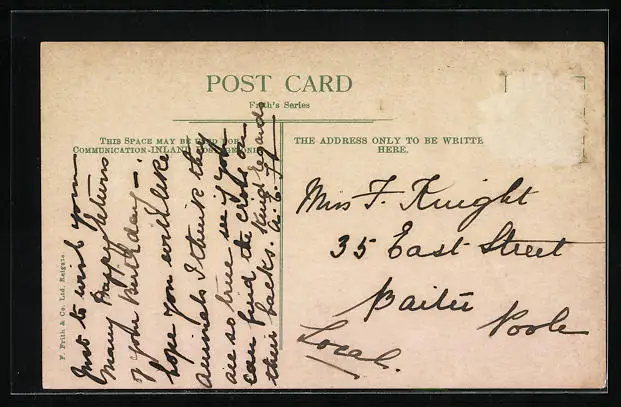 POST CARD
Frith's Series
THIS SPACE MAY BE USED FOR
COMMUNICATION INLAND POSTAGE ONLY
THE ADDRESS ONLY TO BE WRITTE
HERE.
F. Frith & Co. Ltd. Reigate.
Just to wish you
many Happy returns
of your Birthday -.
hope you will like
Animals I think they
are so true if you
can find the on
their backs. Kind Regards
Miss F. Knight
35 East Street
Baiter
Poole
Local.